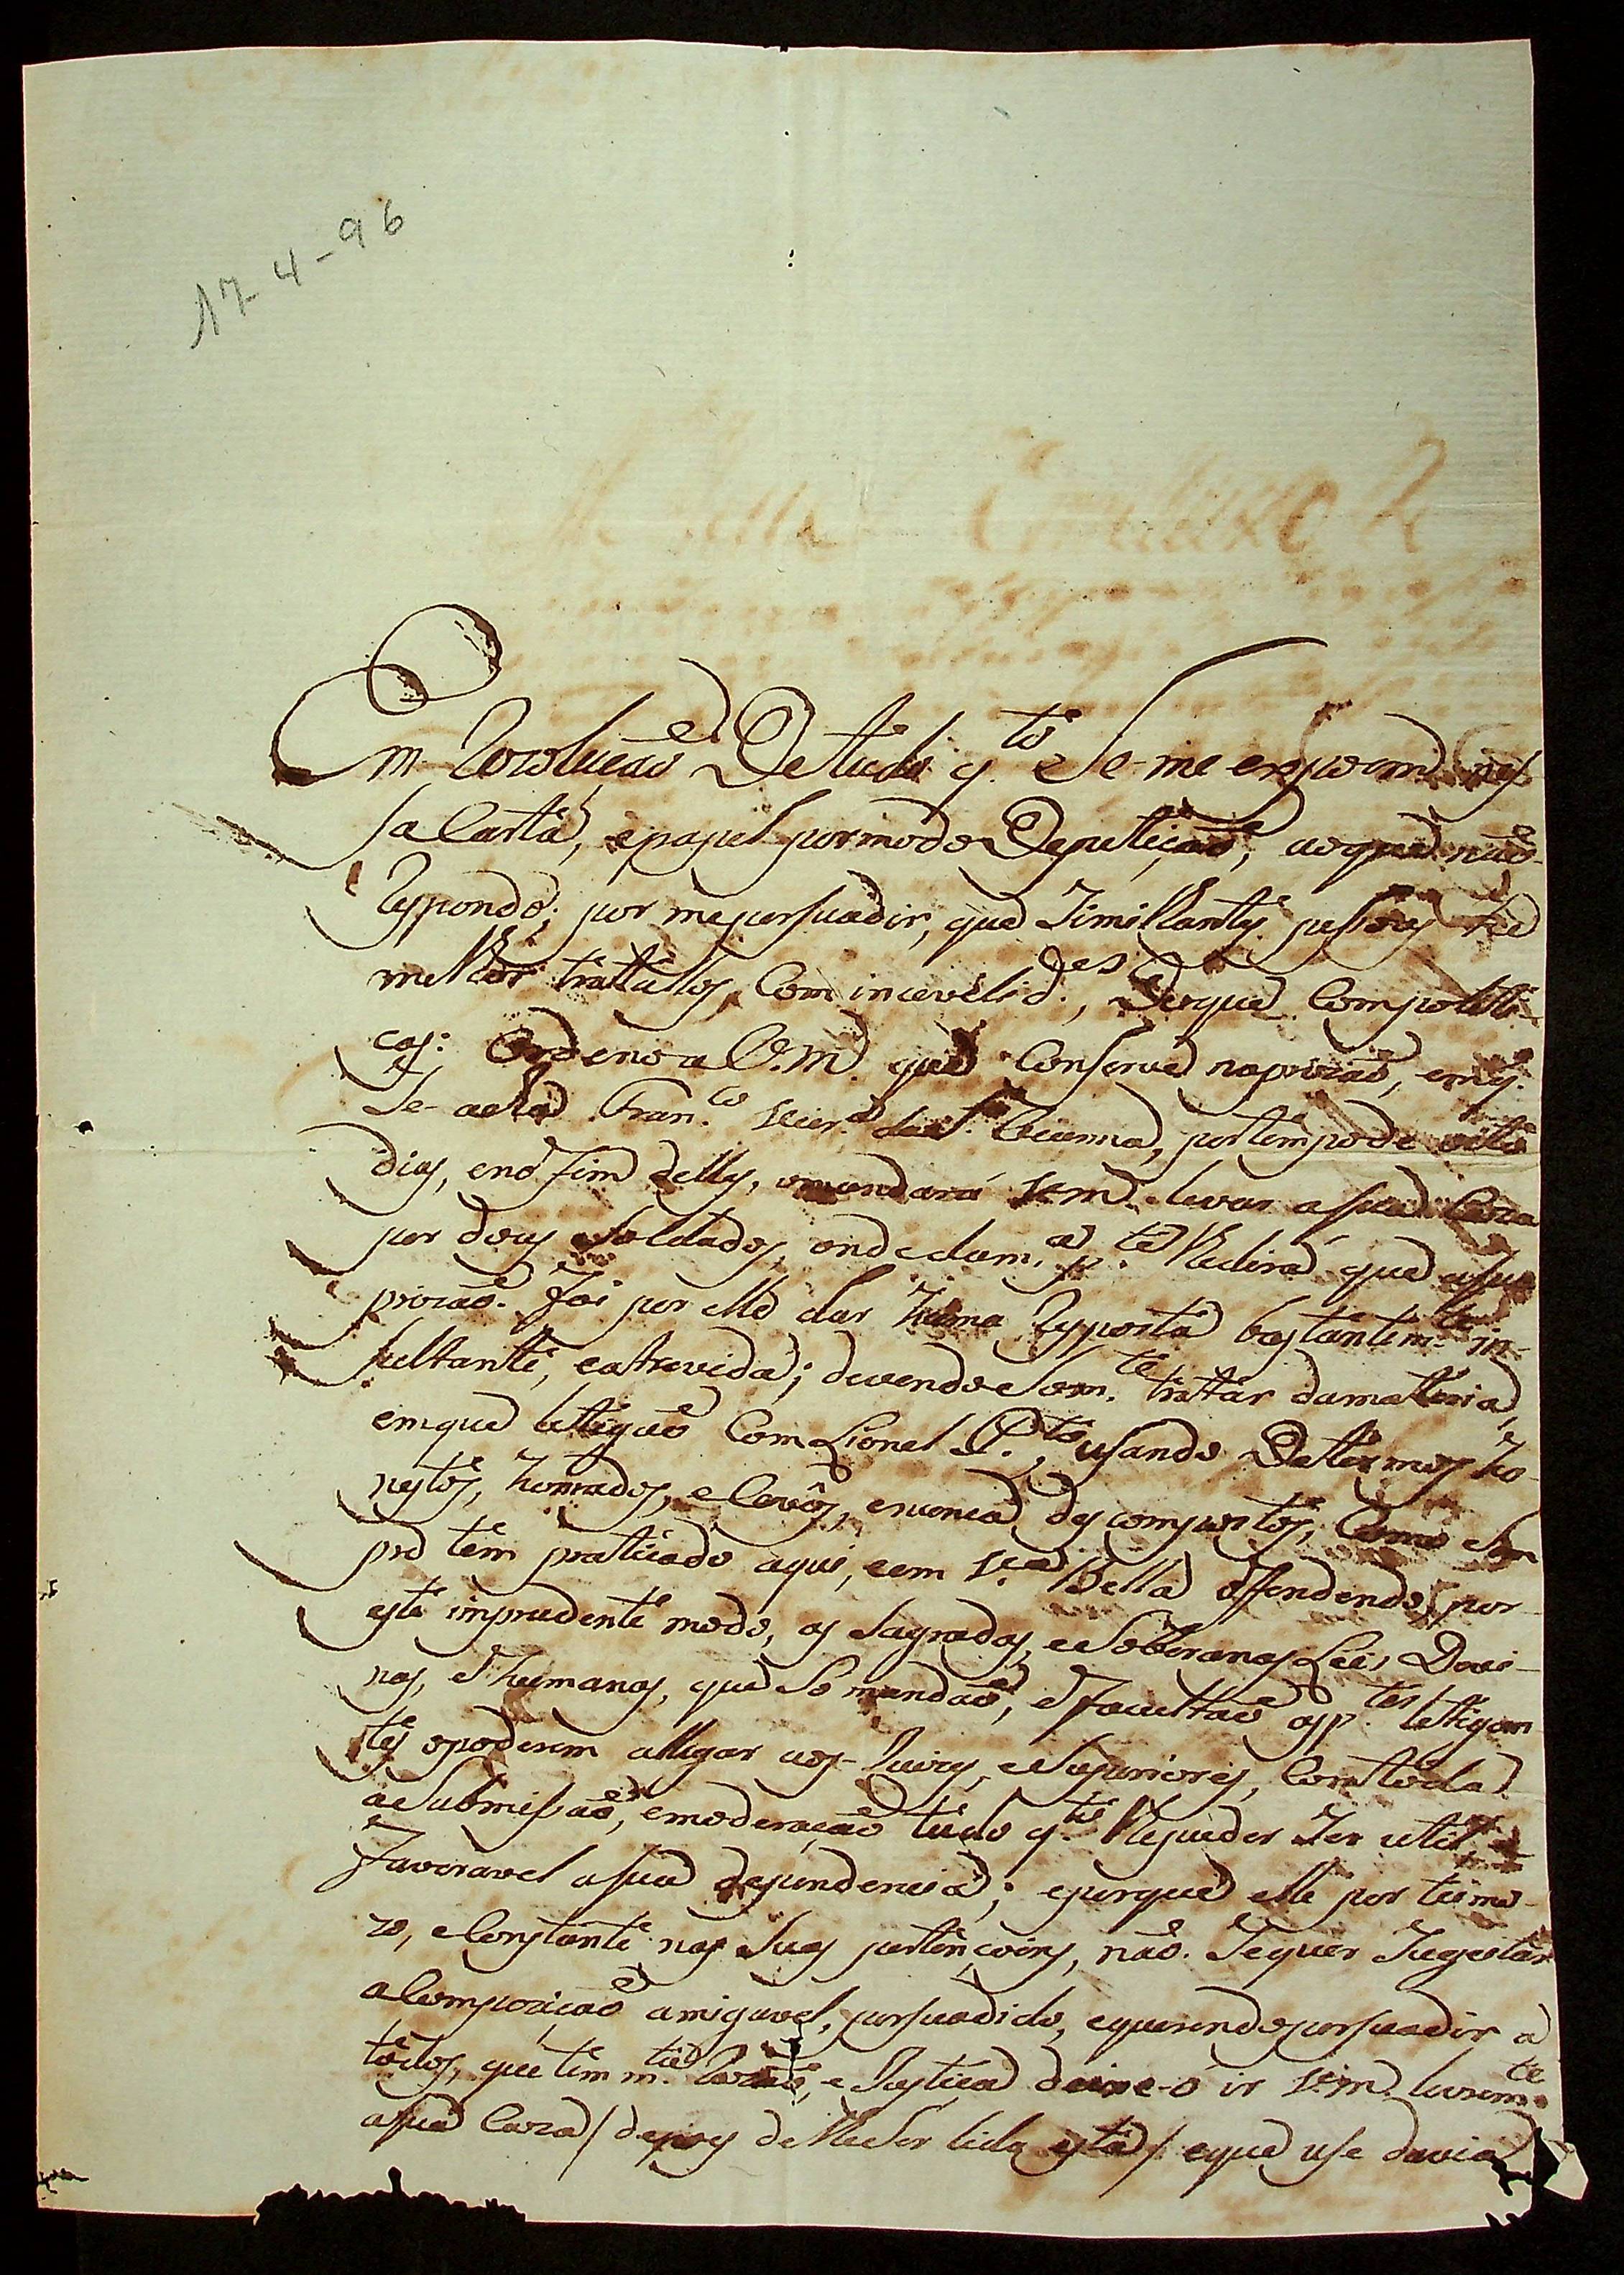 17-4-96
Em Rezolução De tudo q.to Se-me expoem nes
sa Carta, e papel por modo De petição, ao que não
Respondo; por me persuadir, que Similhantes pessoas he
melhor trattallos, Com incevelid.es, Do que Com politi
cas: Ordeno a V.M.ce que Conserve na prizão, em q.
Se acha Fran.co por tempo de oito
dias, e no fim delles, o mandará Vm.ce levar a sua Caza
por dous Soldados, onde dam.a p.te lhe dirá que a sua
prizão. Foi por elle dar huma Resposta bastantem.te in-
sultante, e atrevida; devendo Som.te trattar da materia,
em que letigão Com Lionel P.to, usando De termos ho-
nestos, honrados, e Cevôs, e nunca des compostos, Como Sem
pre tem praticado aqui, e em V.a Bella offendendo, por
este imprudente modo, as Sagradas, e Soberanas Leis Devi-
nas, e humanas, que So mandão, e facultão as p.tes letigan
tes o poderem allegar aos-Juizes, e Superiores, Com toda
a Submissão, e moderação tudo q.to lhe puder Ser util, e
Favoravel a sua dependencia; e porque elle por teimo-
zo, e Constante nas Suas pertençoins, não. Se quer Sugeitar
a Compozição amigavel, persuadido, e querendo persuadir a
todos, que tem m.ta Razão, e Justiça deixe-o ir Vm.ce livrem.te
a sua Caza / depois de lhe Ser lida esta / e que use da via